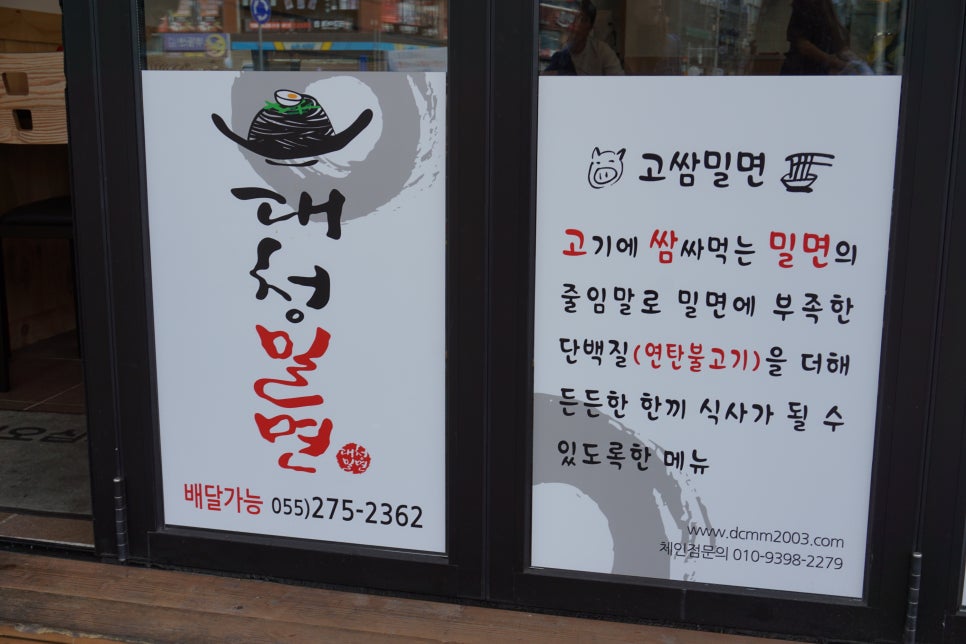 대청밀면
대청
밀면
배달가능 055)275-2362
고쌈밀면
고기에 쌈싸먹는 밀면의
줄임말로 밀면에 부족한
단백질(연탄불고기)을 더해
든든한 한끼 식사가 될 수
있도록한 메뉴
www.dcmm2003.com
체인점문의 010-9398-2279